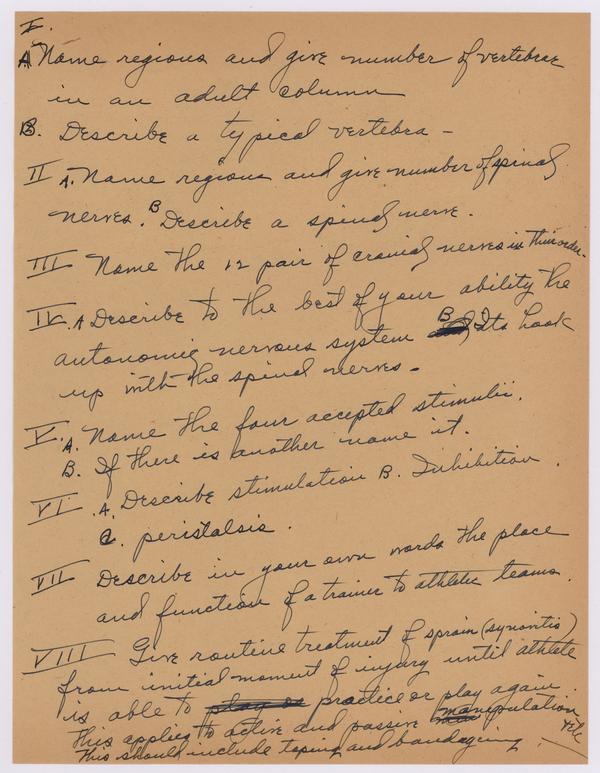 I.
A Name regions and give number of vertebrae
in an adult column
B. Describe a typical vertebra -
II A. Name regions and give number of spinal
nerves. B Describe a spinal nerve.
III Name the 12 pair of cranial nerves in their order.
IV. A Describe to the best of your ability the
autonomic nervous system B Its hook
up with the spinal nerves.
V. A. Name the four accepted stimulii.
B. If there is another name it.
VI. A. Describe stimulation B. Inhibition.
C. peristalsis.
VII Describe in your own words the place
and function of a trainer to athletic teams.
VIII Give routine treatment of sprain (synovitis)
from initial moment of injury until athlete
is able to play or practice or play again.
this applies to active and passive manipulation
This should include taping and bandaging, etc